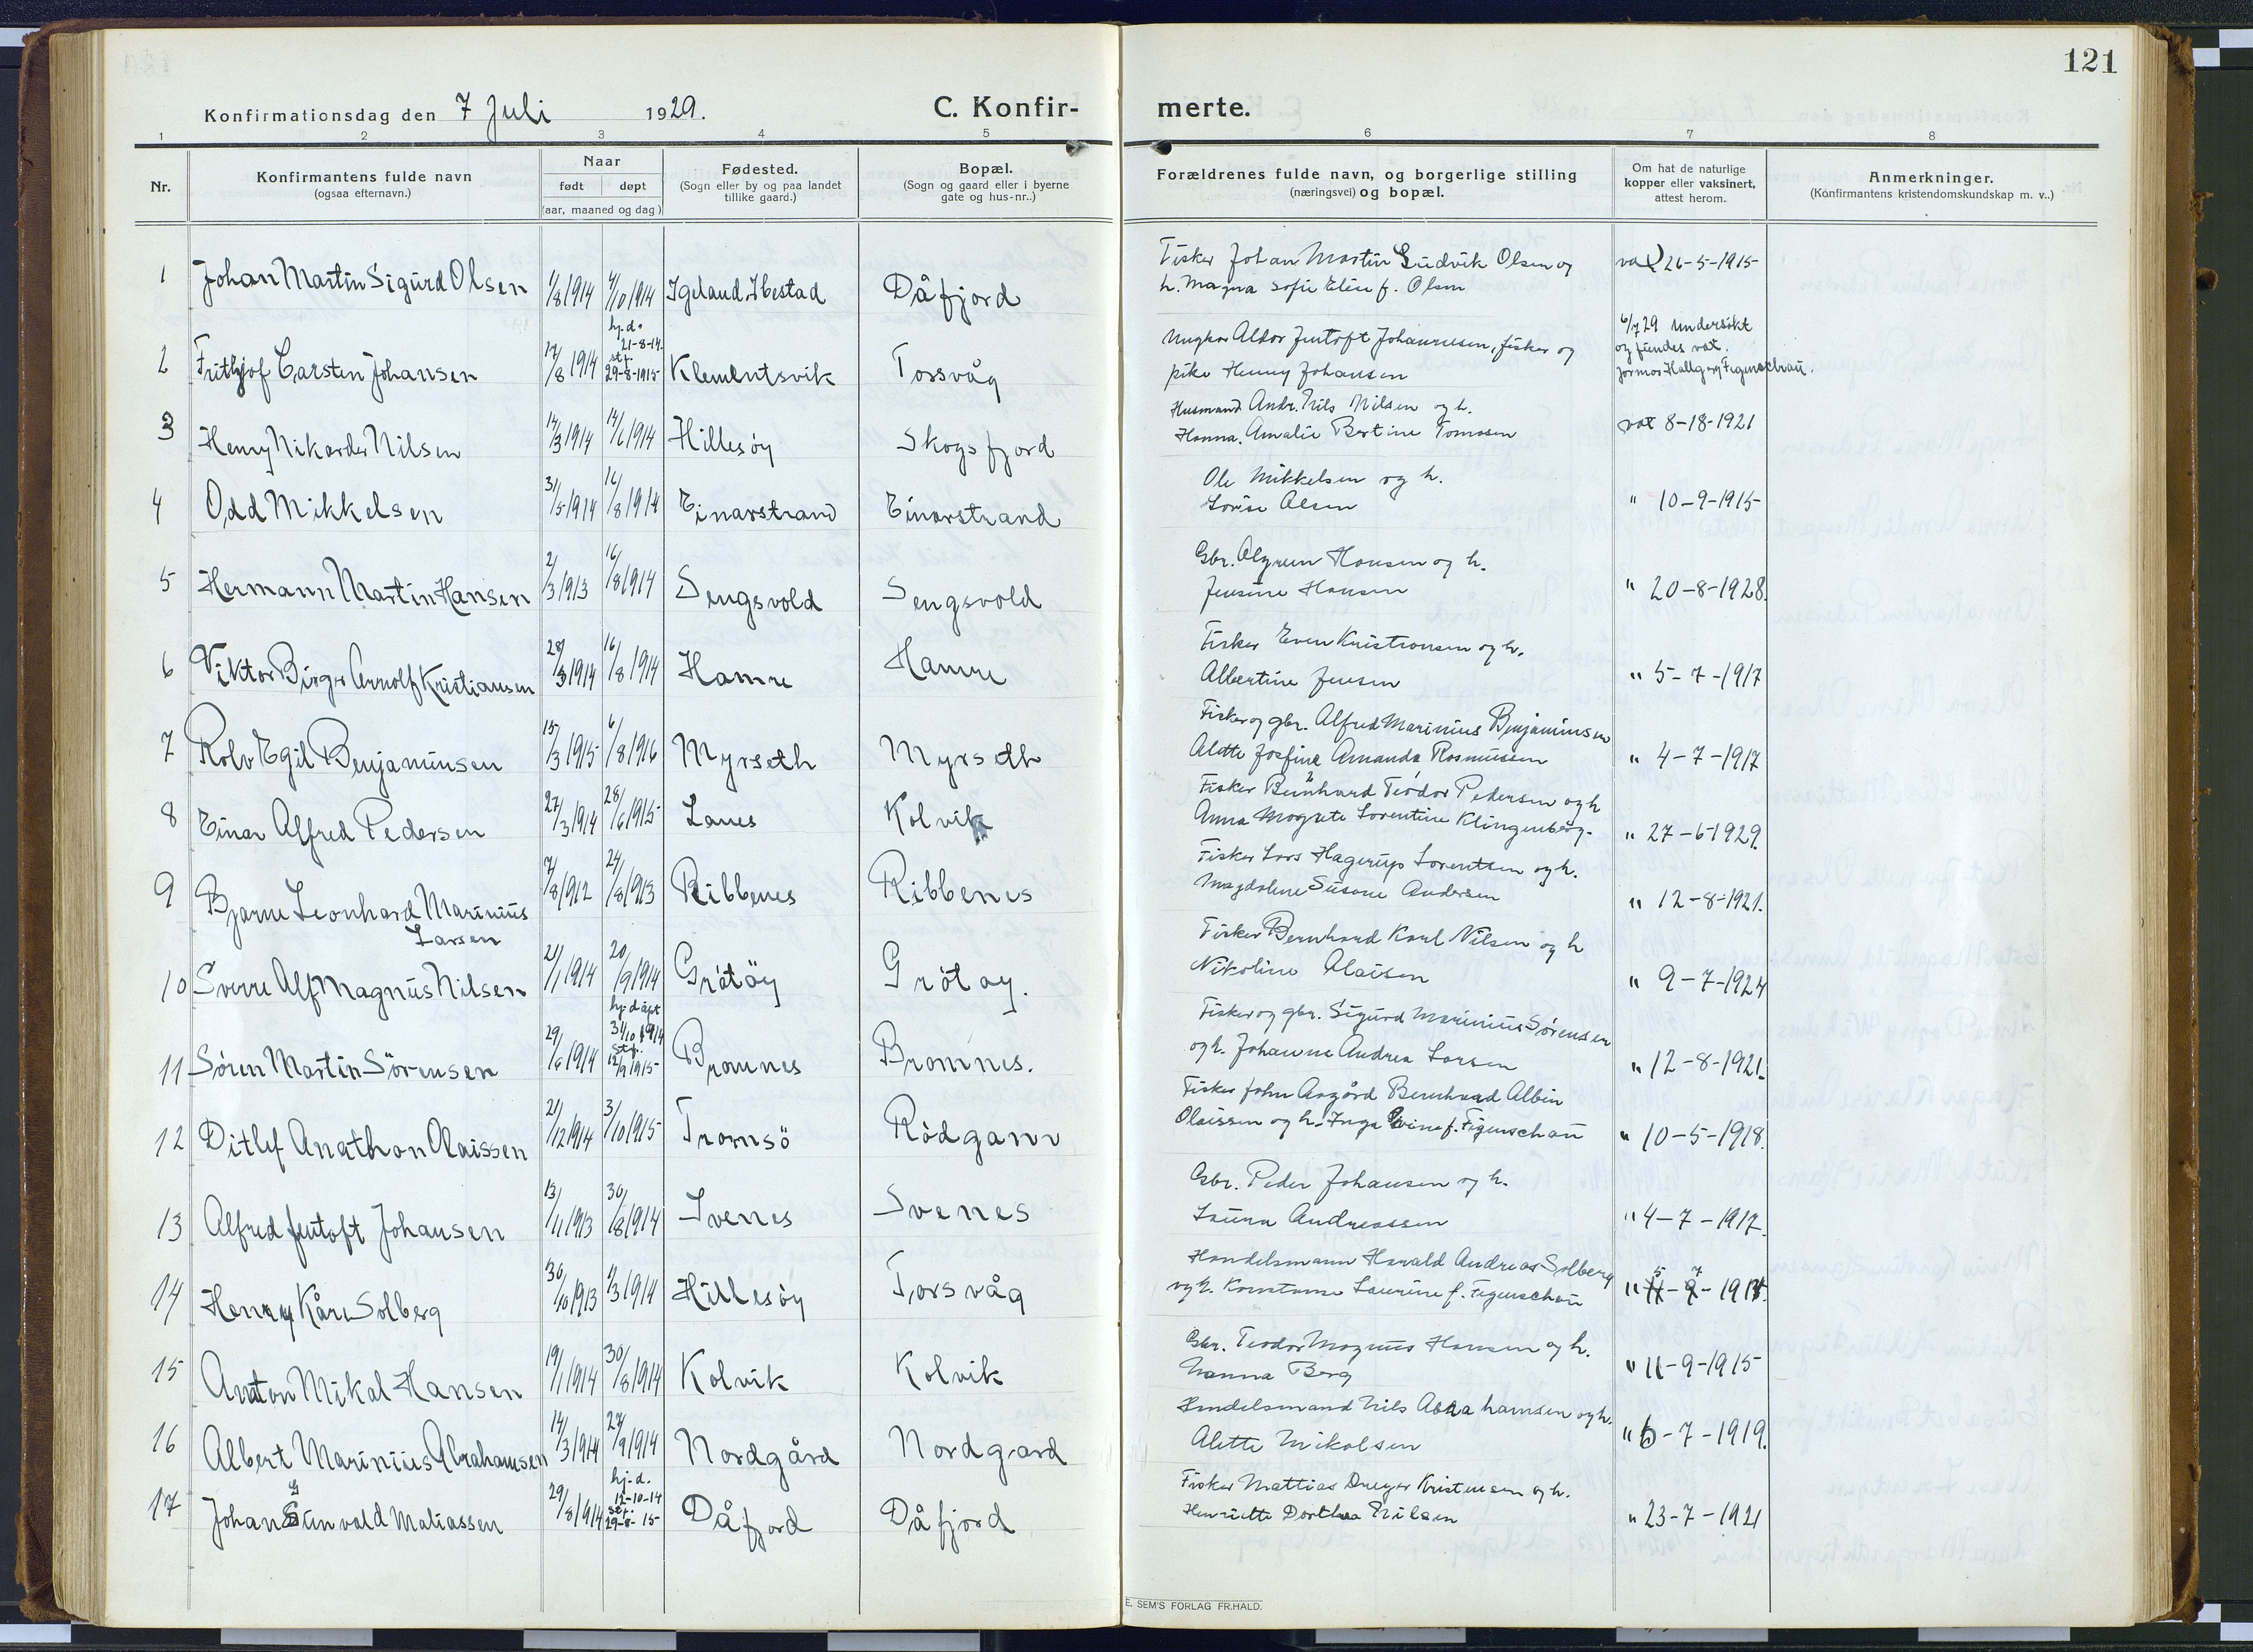 121
Konfirmationsdag den 7 Juli 1929. C. Konfir- merte.
1 2 3 4 5 6 7 8
Nr.
Konfirmantens fulde navn
(ogsaa efternavn.)
Naar
født døpt
(aar, maaned og dag)
Fødested.
(Sogn eller by og paa landet
tillike gaard.)
Bopæl.
(Sogn og gaard eller i byerne
gate og hus-nr..)
Forældrenes fulde navn, og borgerlige stilling
(næringsvei) og bopæl.
Om hat de naturlige
kopper eller vaksinert,
attest herom.
Anmerkninger.
(Konfirmantens kristendomskundskap m. v..)
1 Johan Martin Sigurd Olsen 1/8 1914 4/10 1914 Igeland, Ibestad Dåfjord
Fisker Johan Martin Ludvik Olsen og
h. Magna Sofie Elise f. Olsen
vax 26-5-1915
2 Frithjof Carsten Johansen 17/8 1914 hj. d. 21-8-14. stf. 29-8-1915 Klementsvik Torsvåg
Ungkar Aldor Jentoft Johannesen, fisker og
pike Henny Johansen
6/7 29 undersøkt
og fundes vat.
Hallg Figenschau.
3 Henry Nikarder Nilsen 14/3 1914 14/6 1914 Hillesøy Skogsfjord
Husmand Andr. Nils Nilsen og h.
Hanna Amalie Bertine Tomasen
vax 8-18-1921
4 Odd Mikkelsen 31/5 1914 16/8 1914 Einarstrand Einarstrand
Ole Mikkelsen og h.
Lovise Olsen
" 10-9-1915
5 Hermann Martin Hansen 2/3 1913 16/8 1914 Sengsvold Sengsvold
Gbr. Hansen og h.
Jensine Hansen
" 20-8-1928.
6 Viktor Birger Arnolf Kristiansen 28/3 1914 16/8 1914 Hamre Hamre
Fisker Even Kristiansen og h.
Albertine Jensen
" 5-7-1917
7 Rolv Egil Benjaminsen 15/3 1915 6/8 1916 Myrseth Myrseth
Fisker og gbr. Alfred Marinius Benjaminsen
Alette Josfine Amanda Rasmussen
" 4-7-1917
8 Einar Alfred Pedersen 27/3 1914 28/6 1915 Lanes Kolvik
Fisker Bernhard Teodor Pedersen og h
Anna Magrete Lorentine Klingenberg.
" 27-6-1929.
9 Bjarne Leonhard Marinius
Larsen 7/8 1912 24/8 1913 Ribbenes Ribbenes
Fisker Lars Hagerup Lorentsen og h.
Magdalene Susane Andersen
" 12-8-1921.
10 Sverre Alf Magnus Nilsen 21/1 1914 20/9 1914 Grøtöy Grøtøy.
Fisker Bernhard Karl Nilsen og h
Nikoline Olaisen
" 9-7-1924
11 Søren Martin Sörensen 29/6 1914 hj. døpt 31/10 1914 stf. 12/9 1915 Bromnes Bromnes.
Fisker og gbr. Sigurd Marinius Sørensen
og h. Johanne Andrea Larsen
" 12-8-1921.
12 Ditlef Anathon Olaissen 21/12 1914 3/10 1915 Tromsö Rödgam
Fisker John Asgård Bernhard Albin
Olaissen og h. Inga f. Figenschau
" 10-5-1918.
13 Alfred Jentoft Johansen 13/11 1913 30/8 1914 Svenes Svenes
Gbr. Peder Johansen og h.
Laura Andreassen
" 4-7-1917.
14 Henry Kåre Solberg 30/10 1913 1/3 1914 Hillesøy Torsvåg
Handelsmann Harald Andreas Solberg
og h. Konstanse Laurine f. Figenschau
" 5-7-1917.
15 Anton Mikal Hansen 19/1 1914 30/8 1914 Kolvik Kolvik
Gbr. Teodor Magnus Hansen og h.
Nanna Berg
" 11-9-1915
16 Albert Marinius Abrahamsen 14/3 1914 27/9 1914 Nordgård Nordgard
Handelsmand Nils Abrahamsen og h.
Alette Mikalsen
" 6-7-1919.
17 Johan Gunvald Matiassen 29/8 1914 hj. d. 12-10-14 stf. 29-8-15 Dåfjord Dåfjord
Fisker Mattias Dreyer Kristensen og h.
Henriette Dorthea Nilsen
" 23-7-1921
E. SEM'S FORLAG FR.HALD.